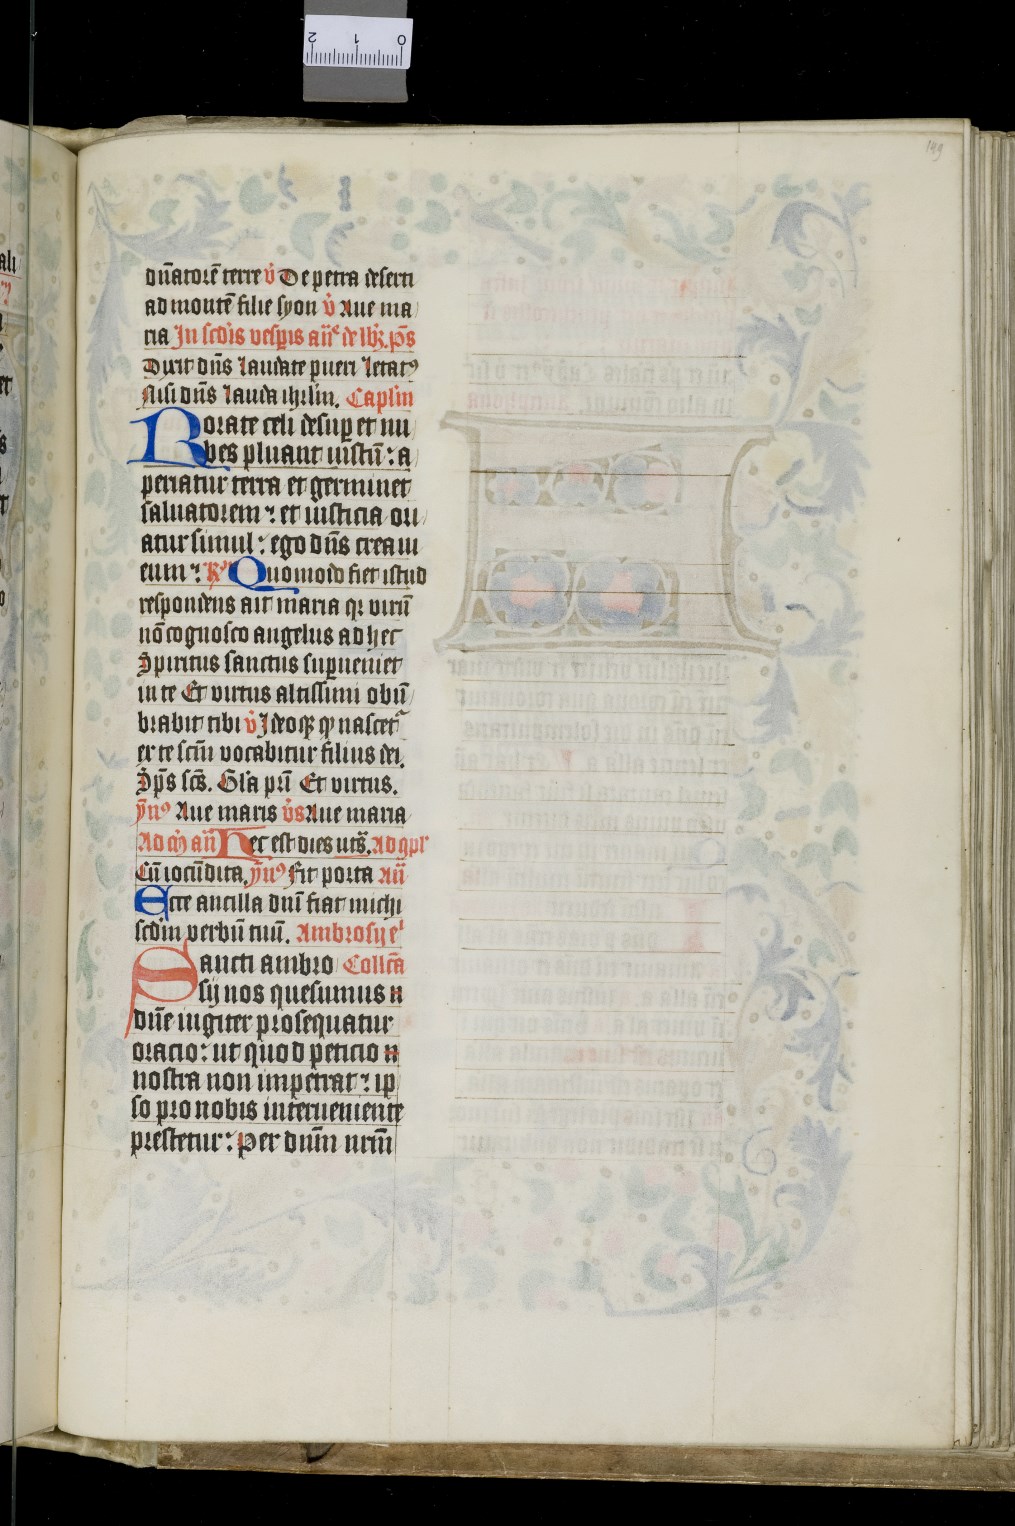 149
dn̄atorē terre v̉ De petra deserti
ad montē filie syon v̉ Aue ma
ria In scd̓is vesp̱is an̄e de lb̓ꝫ. p̄s
Dixit dn̄s laudate pueri letatꝰ
Nisi dn̄s lauda ihrl̄m. Caplm̄
Rorate celi desup̱ et nu
bes pluant iustū : a
periatur terra et germinet
saluatorem : et iusticia ori
atur simul : ego dn̄s creaui
eum : R̄ Quomodo fiet istud
respondens ait maria qꝛ virū
nō cognosco angelus ad hec
Spiritus sanctus superueniet
in te Et virtus altissimi obū
brabit tibi v̉ Ideoqꝫ qɔ nascet᷑
ex te scm̄ vocabitur filius dei.
Sp̄s scs̄. Gl̓a pr̄i Et virtus.
ȳnꝰ Aue maris v̉s Aue maria
Ad m̄ an̄ Hec est dies uts̄. Ad ꝯpl̓
Cū iocūdita. ȳnꝰ Fit porta An̄
Ecce ancilla dn̄i fiat michi
scdm̄ verbū tuū. Ambrosij e
Sancti ambro Collc̄a
sij nos quesumus
dn̄e iugiter prosequatur
oracio : ut quod peticio
nostra non impetrat : ip
so pro nobis interueniente
prestetur : Per dnm̄ nrm̄